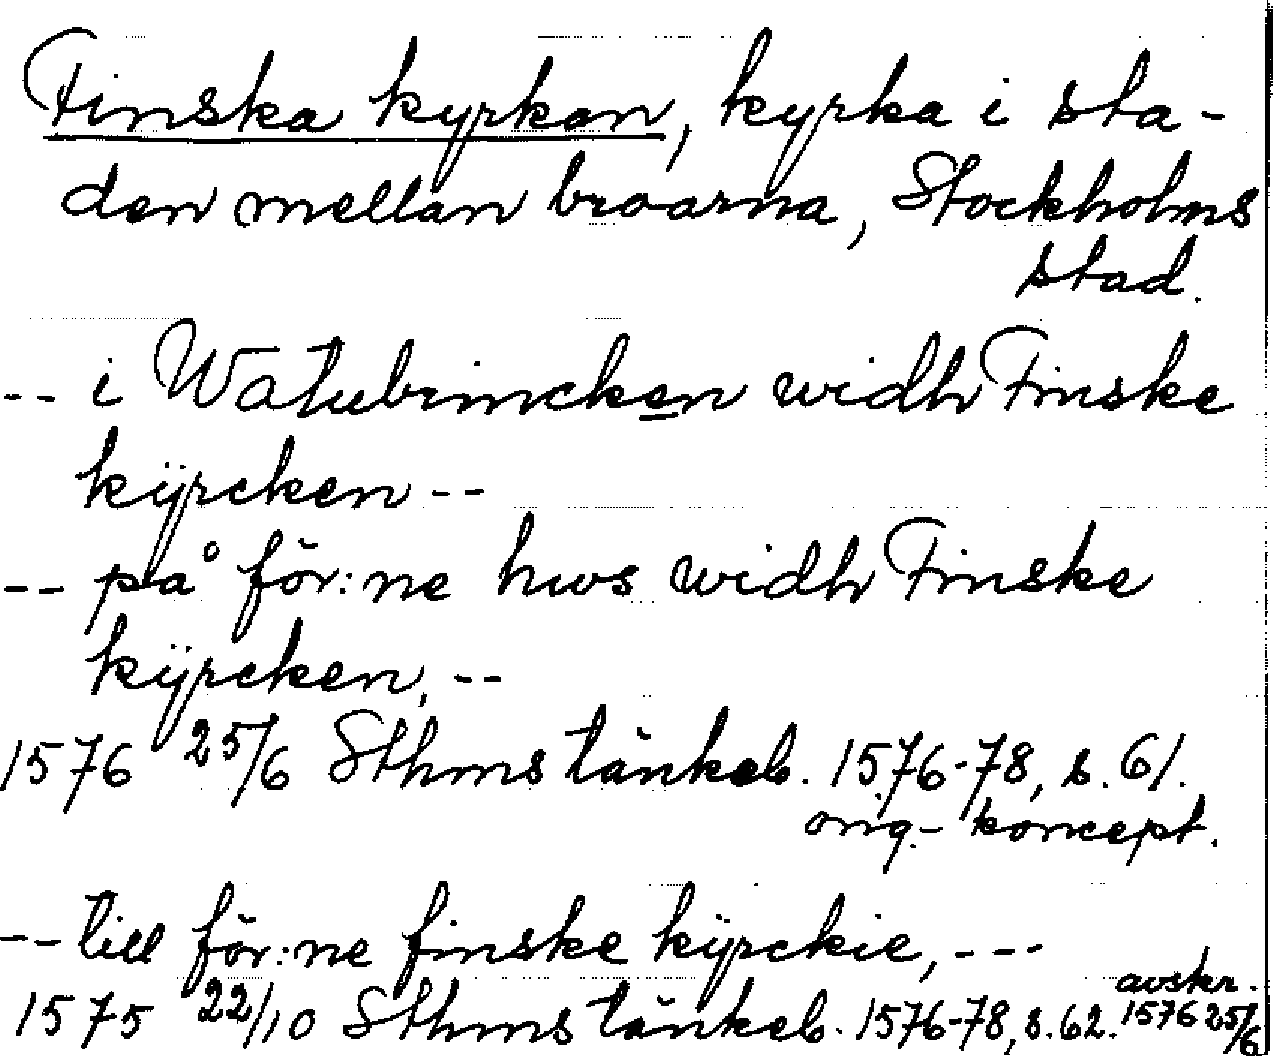 Finska kyrkan, kyrka i sta-
den mellan broarna, Stockholms
stad.
-- i Watubrincken widh Finske
kÿrcken --
-- på för:ne hws widh Finske
kÿrcken, --
1576 25/6 Sthms tänkeb. 1576-78, s. 61.
orig.- koncept.
-- till för:ne finske kÿrckie, ---
avskr.
1575 22/10 Sthms tänkeb. 1576-78, s. 62. 1576 25/6